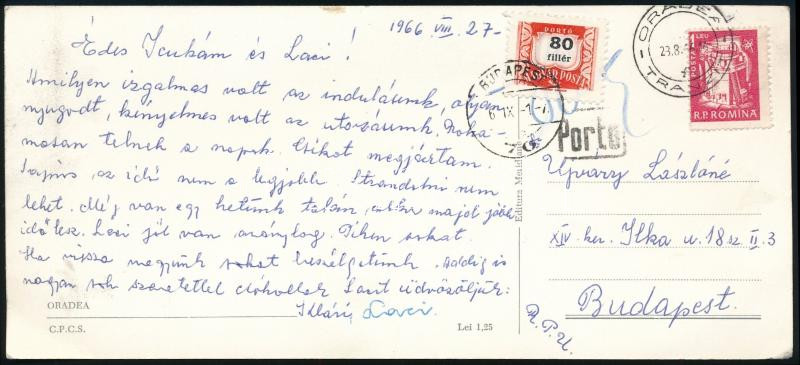 1966 VIII. 27-
Édes Icukám és Laci!
Amilyen izgalmas volt az indulásunk, olyan
nyugodt, kényelmes volt az utazásunk.
mosan telnek a napok. Csíkot megjártam.
Sajnos az idő nem a legjobb. Strandolni nem
lehet. Még van egy hetünk talán, akkor majd jobb
idő lesz. Laci jól van aránylag. Pihen sokat.
Ha vissza megyünk sokat beszélgetünk. addig is
nagyon sok szeretettel csókollak Lacit üdvözöljük:
Klári Laci
ORADEA
C.P.C.S.
Lei 1,25
Editura
PORTÓ
80
fillér
MAGYAR POSTA
BUDAPEST
Porto
ORADEA
23.8.
1 LEU
POSTA
R.P. ROMINA
Ujvary Lászlóné
XIV. ker. Ilka u. 18 sz II. 3
Budapest.
R.P.U.